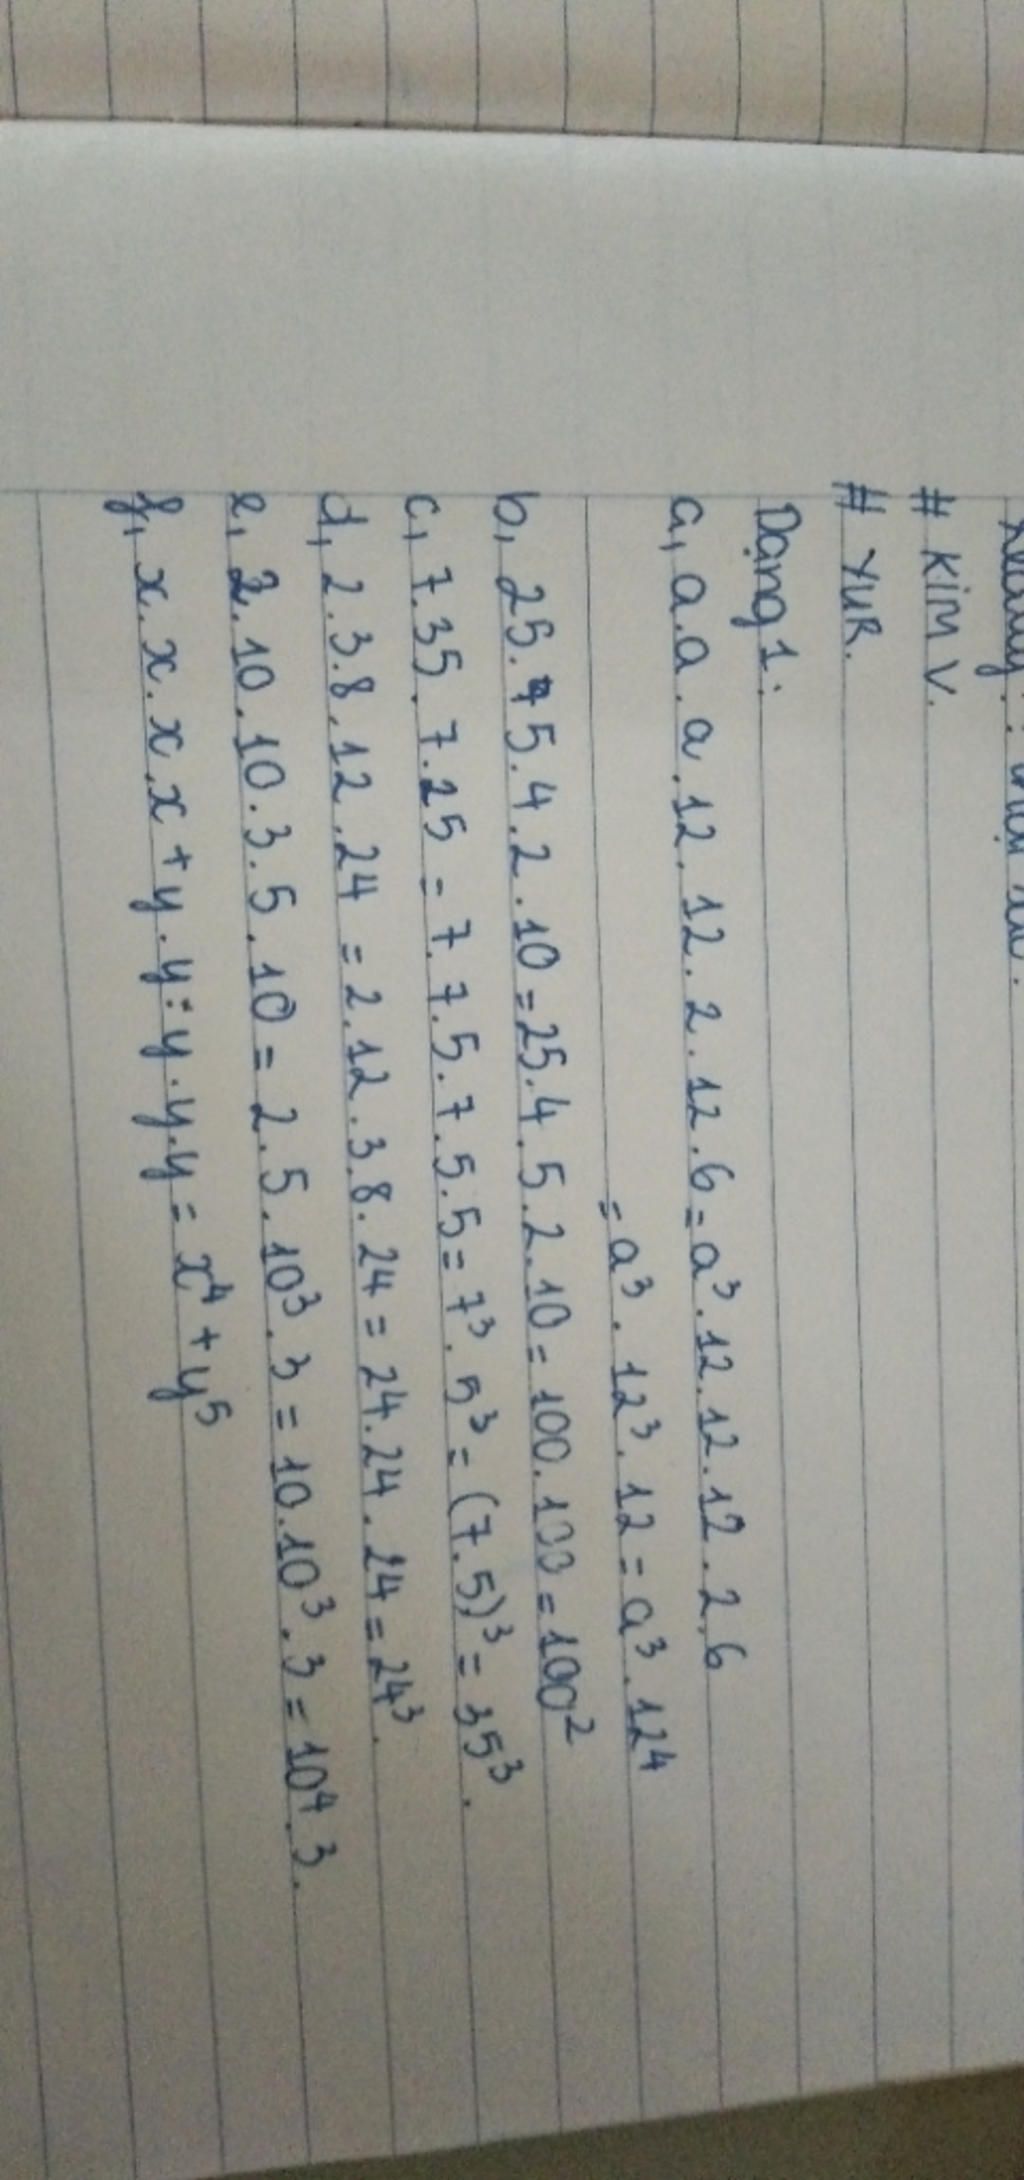 # KIM V.
# YUR.
Dạng 1:
a, a.a.a.12.12.2.12.6=a³.12.12.12.2.6
=a³.12³.12=a³.12⁴
b, 25.5.4.2.10=25.4.5.2.10=100.100=100²
c, 7.35.7.25=7.7.5.7.5.5=7³.5³=(7.5)³=35³.
d, 2.3.8.12.24=2.12.3.8.24=24.24.24=24³.
e, 2.10.10.3.5.10=2.5.10³.3=10.10³.3=10⁴.3.
f, x.x.x.x+y.y:y.y.y=x⁴+y⁵